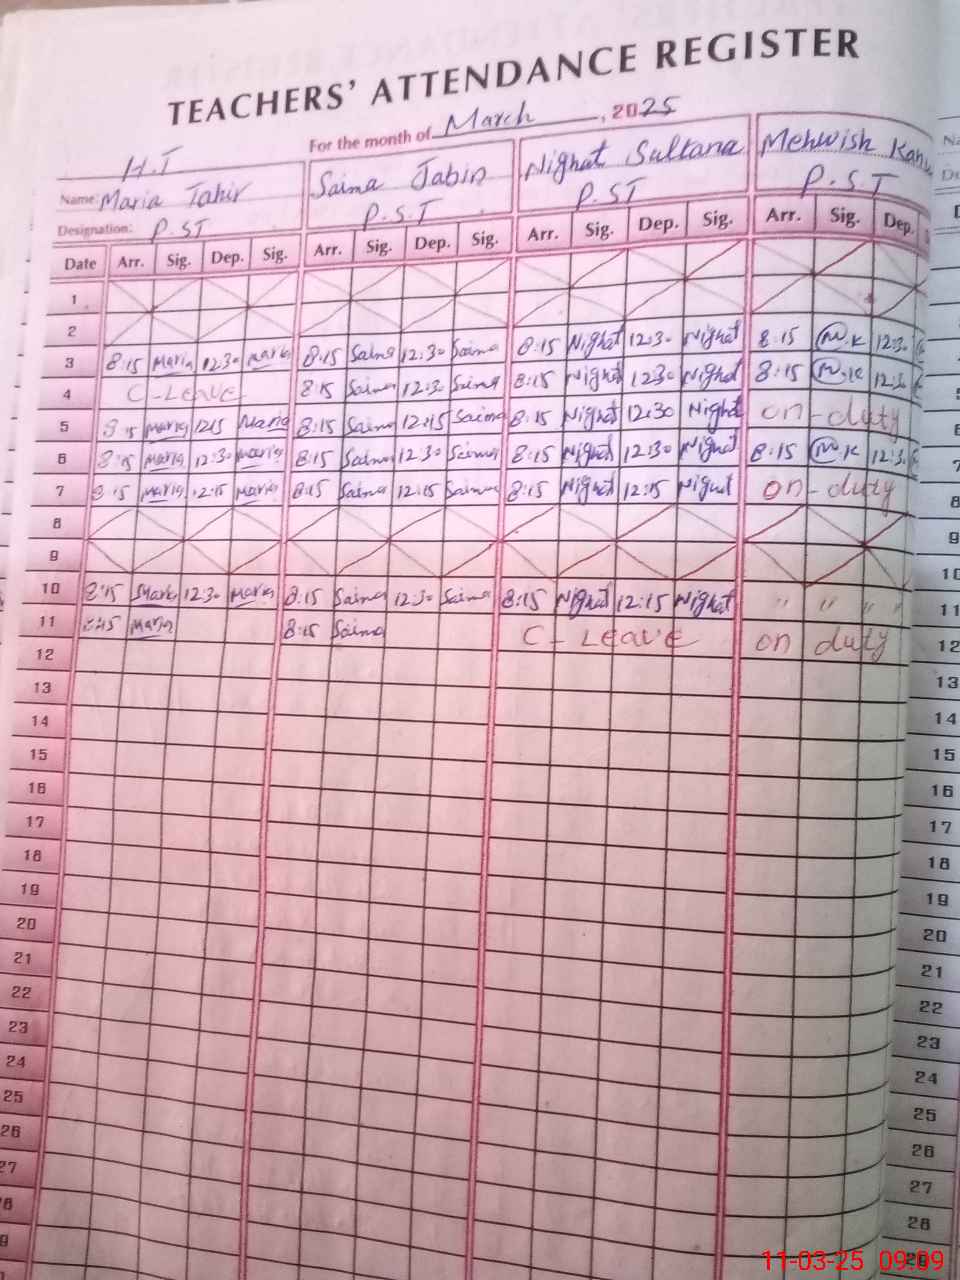 TEACHERS' ATTENDANCE REGISTER
For the month of March, 2025
H.T
Name: Maria Tahir Saima Jabin Nighat Sultana Mehwish
Designation: P.ST P.S.T P.ST P.S.T
Date Arr. Sig. Dep. Sig. Arr. Sig. Dep. Sig. Arr. Sig. Dep. Sig. Arr. Sig. Dep.
1
2
3 8:15 Maria 12:30 Maria 8:15 Saima 12:30 Saima 8:15 Nighat 12:30 Nighat 8:15 M.K 12:30
4 C-Leave 8:15 Saima 12:30 Saima 8:15 Nighat 12:30 Nighat 8:15 M.K 12:30
5 8:15 Maria 12:15 Maria 8:15 Saima 12:15 Saima 8:15 Nighat 12:30 Nighat on-duty
6 8:15 Maria 12:30 Maria 8:15 Saima 12:30 Saima 8:15 Nighat 12:30 Nighat 8:15 M.K 12:30
7 8:15 Maria 12:15 Maria 8:15 Saima 12:15 Saima 8:15 Nighat 12:15 Nighat on-duty
8
9
10 8:15 Maria 12:30 Maria 8:15 Saima 12:30 Saima 8:15 Nighat 12:15 Nighat " " " "
11 8:15 Maria 8:15 Saima C-Leave on duty
12
13
14
15
16
17
18
19
20
21
22
23
24
25
26
27
5
6
7
8
9
10
11
12
13
14
15
16
17
18
19
20
21
22
23
24
25
26
27
28
11-03-25 09:09